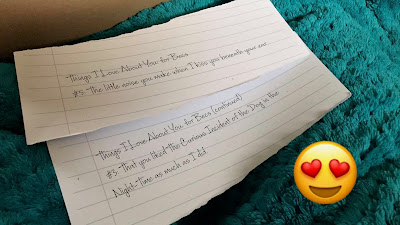 -Things I Love About You for Becs
#5 -The little noise you make when I kiss you beneath your ear.
-Things I Love About You for Becs (continued)
#3- That you liked The Curious Incident of the Dog in the
Night-Time as much as I did